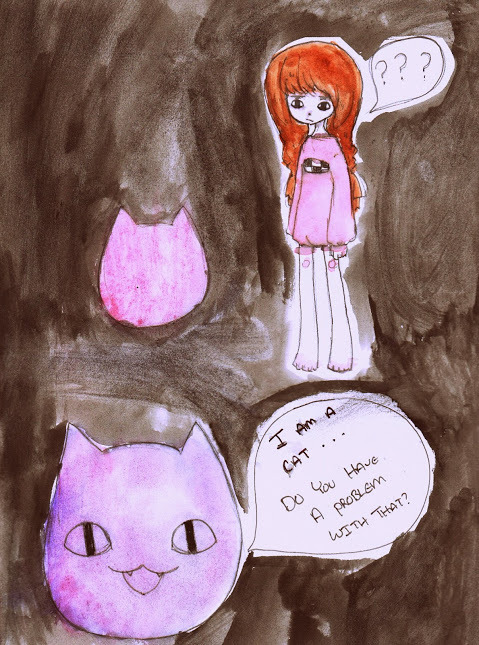 ? ? ?
I AM A
CAT ...
DO YOU HAVE
A PROBLEM
WITH THAT?